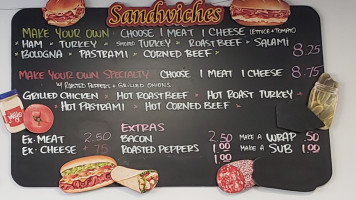 Sandwiches
MAKE YOUR OWN CHOOSE 1 MEAT 1 CHEESE (LETTICE + TOMATO)
HAM TURKEY SMOKED TURKEY ROAST BEEF SALAMI
BOLOGNA PASTRAMI CORNED BEEF 8.25
MAKE YOUR OWN SPECIALTY CHOOSE 1 MEAT 1 CHEESE 8.75
W/ ROASTED PEPPERS & GRILLED ONIONS
GRILLED CHICKEN HOT ROAST BEEF HOT ROAST TURKEY
HOT PASTRAMI HOT CORNED BEEF
EXTRAS
EX. MEAT 2.50 BACON 2.50 MAKE A WRAP .50
EX. CHEESE .75 ROASTED PEPPERS 1.00 MAKE A SUB 1.00
1.00